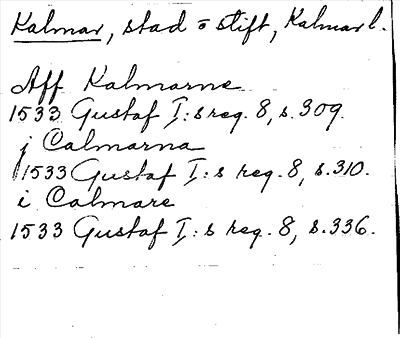 Kalmar, stad o stift, Kalmar l.
Aff Kalmarne
1533 Gustaf I:s reg. 8, s. 309.
j Calmarna
1533 Gustaf I:s reg. 8, s. 310.
i Calmare
1533 Gustaf I:s reg. 8, s. 336.